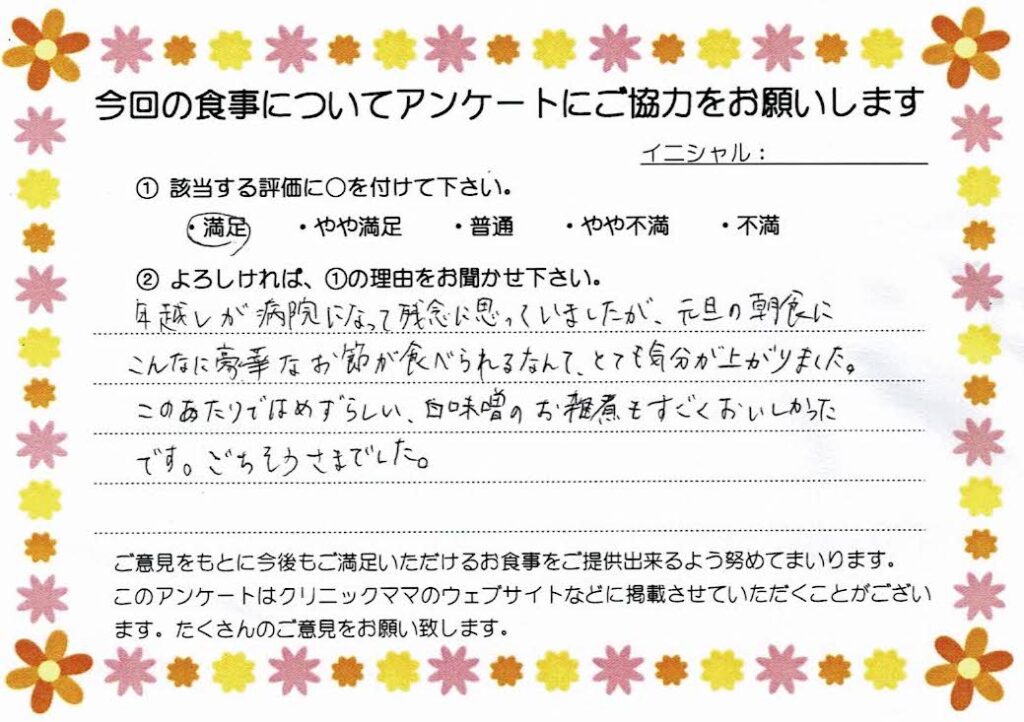 今回の食事についてアンケートにご協力をお願いします
イニシャル：
① 該当する評価に○を付けて下さい。
・満足 ・やや満足 ・普通 ・やや不満 ・不満
② よろしければ、①の理由をお聞かせ下さい。
年越しが病院になって残念に思っていましたが、元旦の朝食に
こんなに豪華なお節が食べられるなんて、とても気分が上がりました。
このあたりではめずらしい、白味噌のお雑煮もすごくおいしかった
です。ごちそうさまでした。
ご意見をもとに今後もご満足いただけるお食事をご提供出来るよう努めてまいります。
このアンケートはクリニックママのウェブサイトなどに掲載させていただくことがござい
ます。たくさんのご意見をお願い致します。